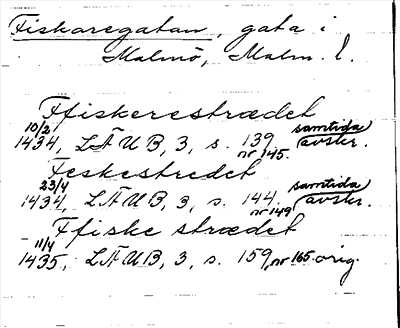 Fiskaregatan, gata i
Malmö, Malm. l.
Ffiskerestrædet
10/2 1434, LÄUB, 3, s. 139 nr 145. samtida avskr.
Feskestredet
23/4 1434, LÄUB, 3, s. 144. nr 149 samtida avskr.
Ffiske strædet
11/4 1435, LÄUB, 3, s. 159, nr 165. orig.